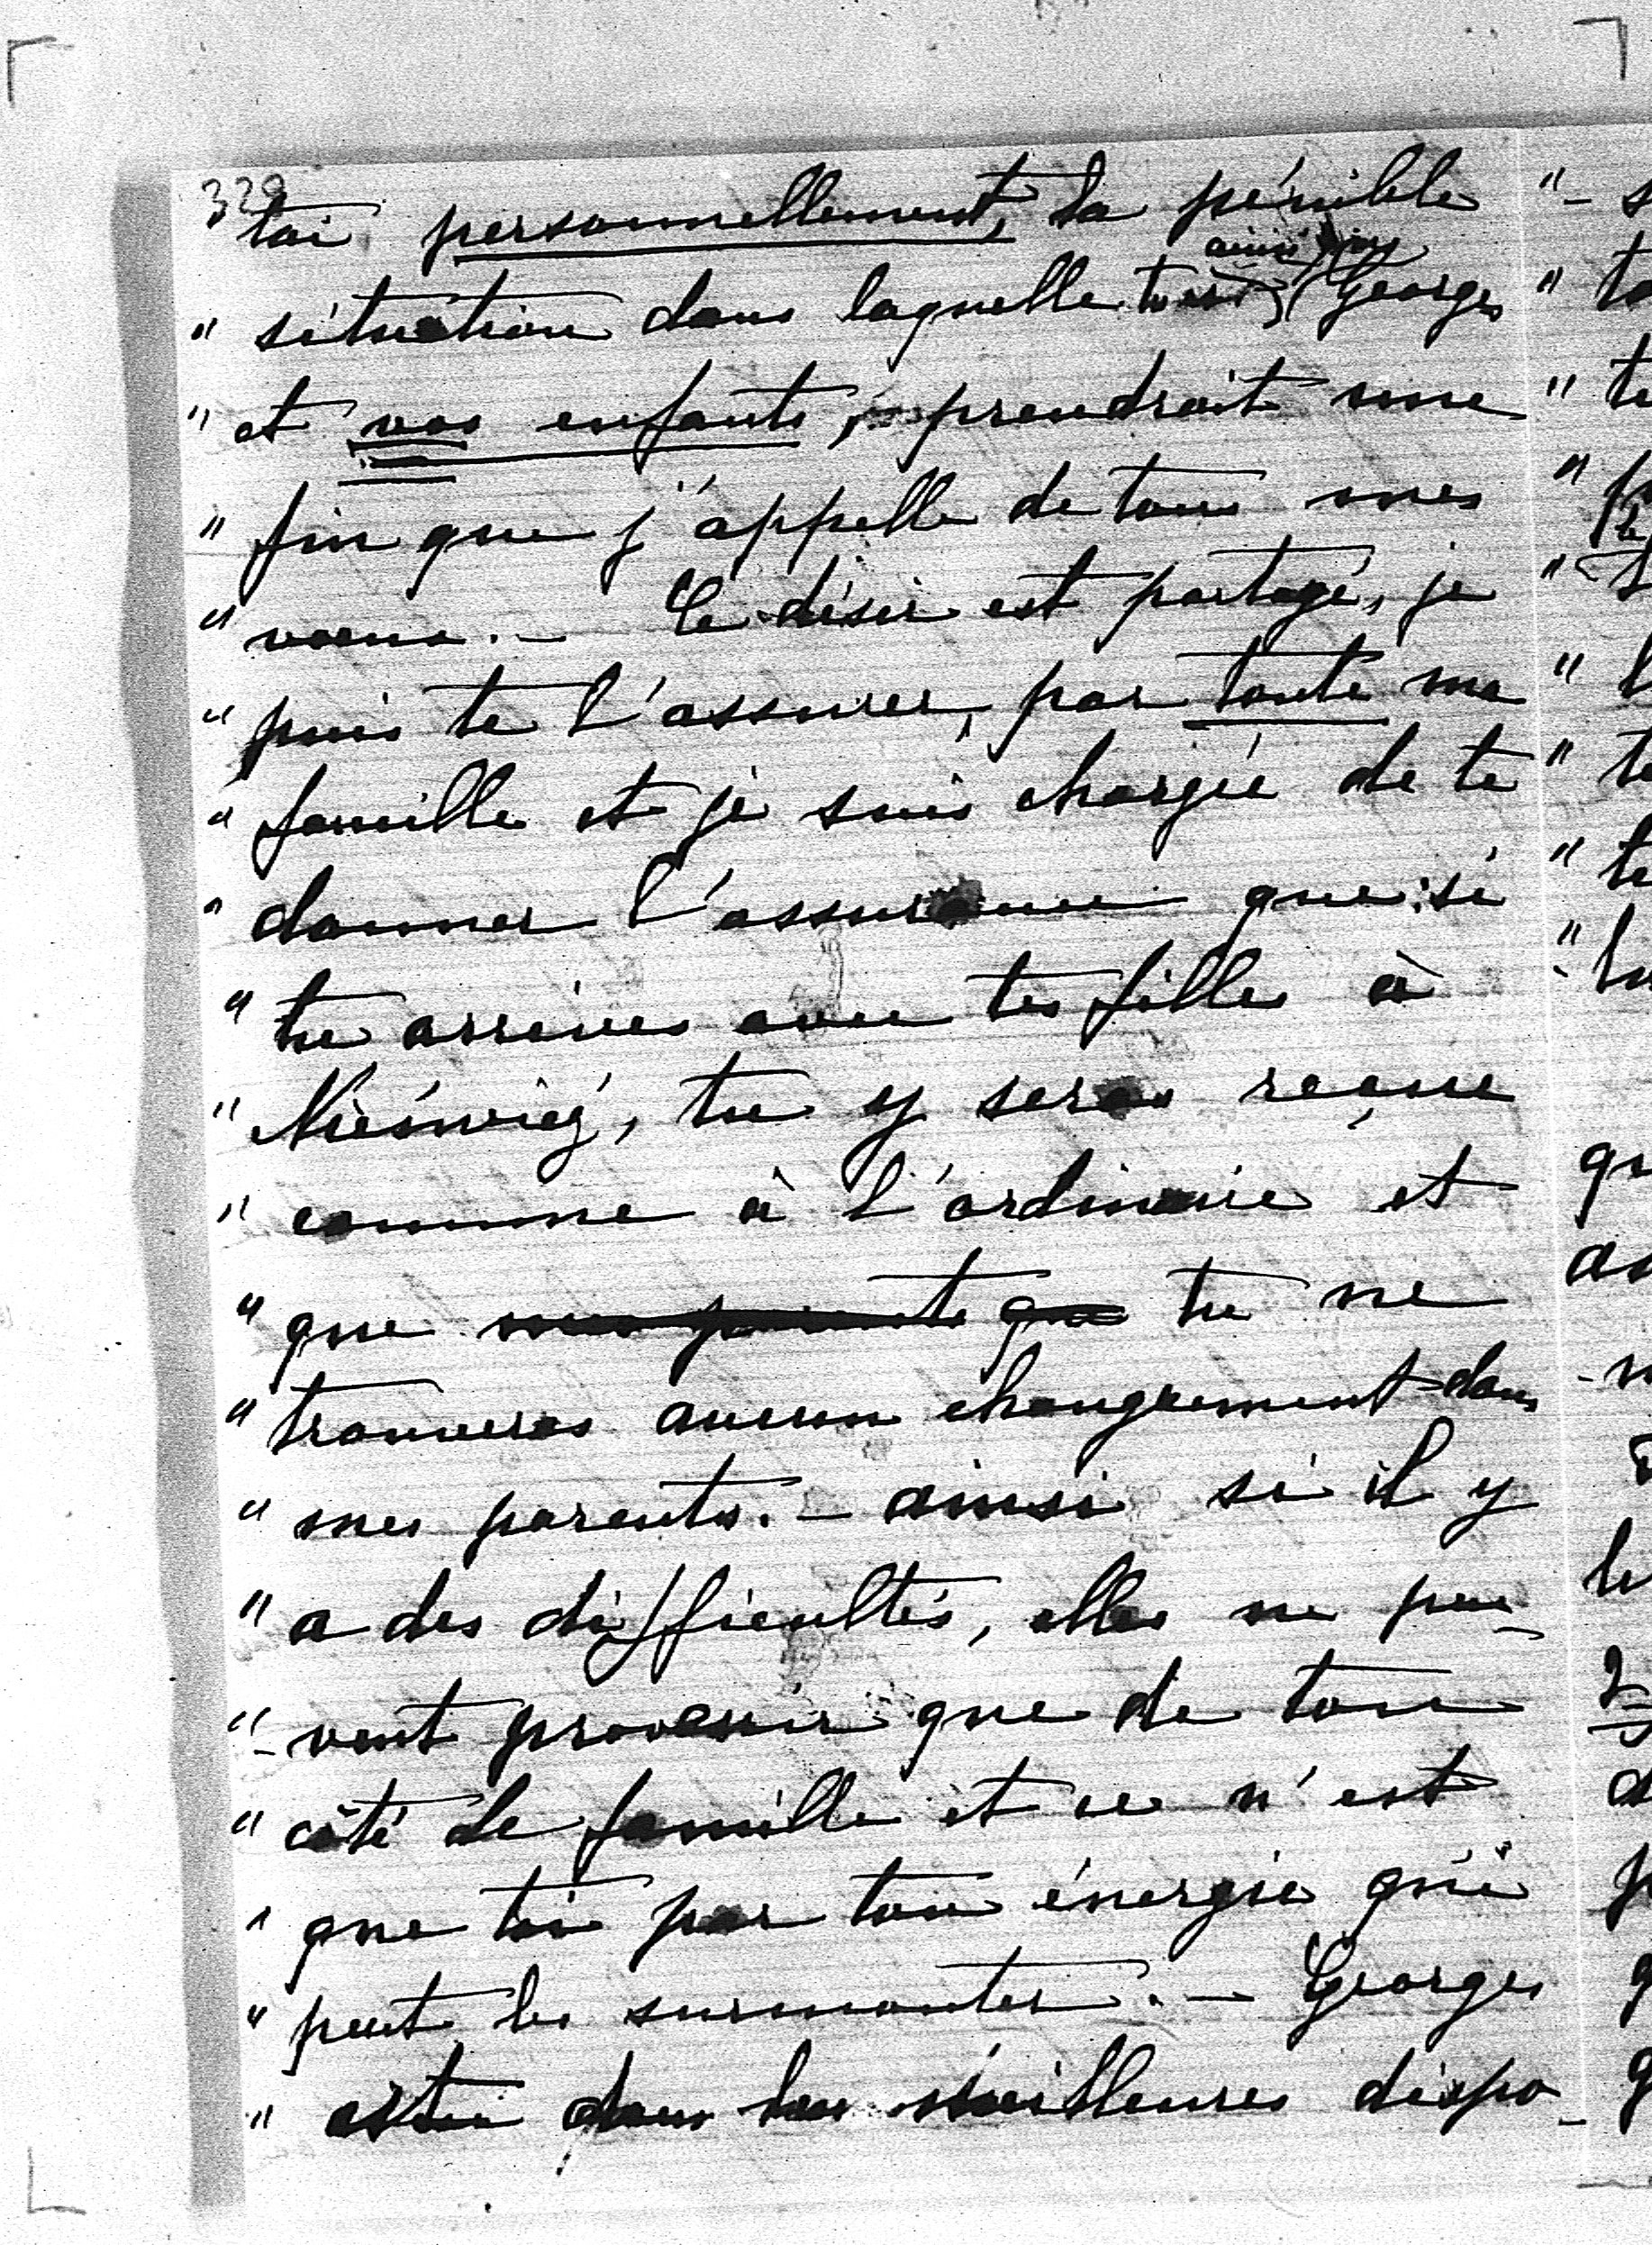 329
toi personnellement, la pénible
" situation dans laquelle tu es ainsi que Georges
" et vos enfants, prendrait une
" fin que j'appelle de tous mes
" voeux. - Ce désir est partagé, je
" puis te l'assurer, par toute ma
" famille et je suis chargée de te
" donner l'assurance que si
" tu arrives avec tes filles à
" Nieśwież, tu y seras reçue
" comme à l'ordinaire et
" que mes parents que tu ne
" trouveras aucun changement dans
" mes parents. - ainsi si il y
" a des difficultés, elles ne peu-
"- vent provenir que de ton
" côté de famille et ce n'est
" que toi par ton énergie qui
" peut les surmonter. - Georges
" dans les meilleures dispo-